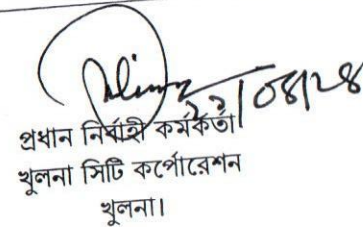 ২২/০৪/২৪
প্রধান নির্বাহী কর্মকর্তা
খুলনা সিটি কর্পোরেশন
খুলনা।